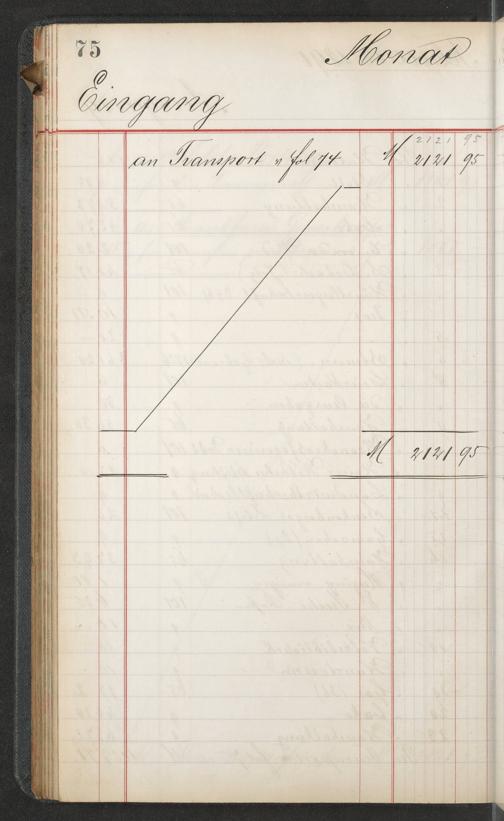 75 Monat
Eingang
2121 95
an Transport v fol 74 M 2121 95
M 2121 95